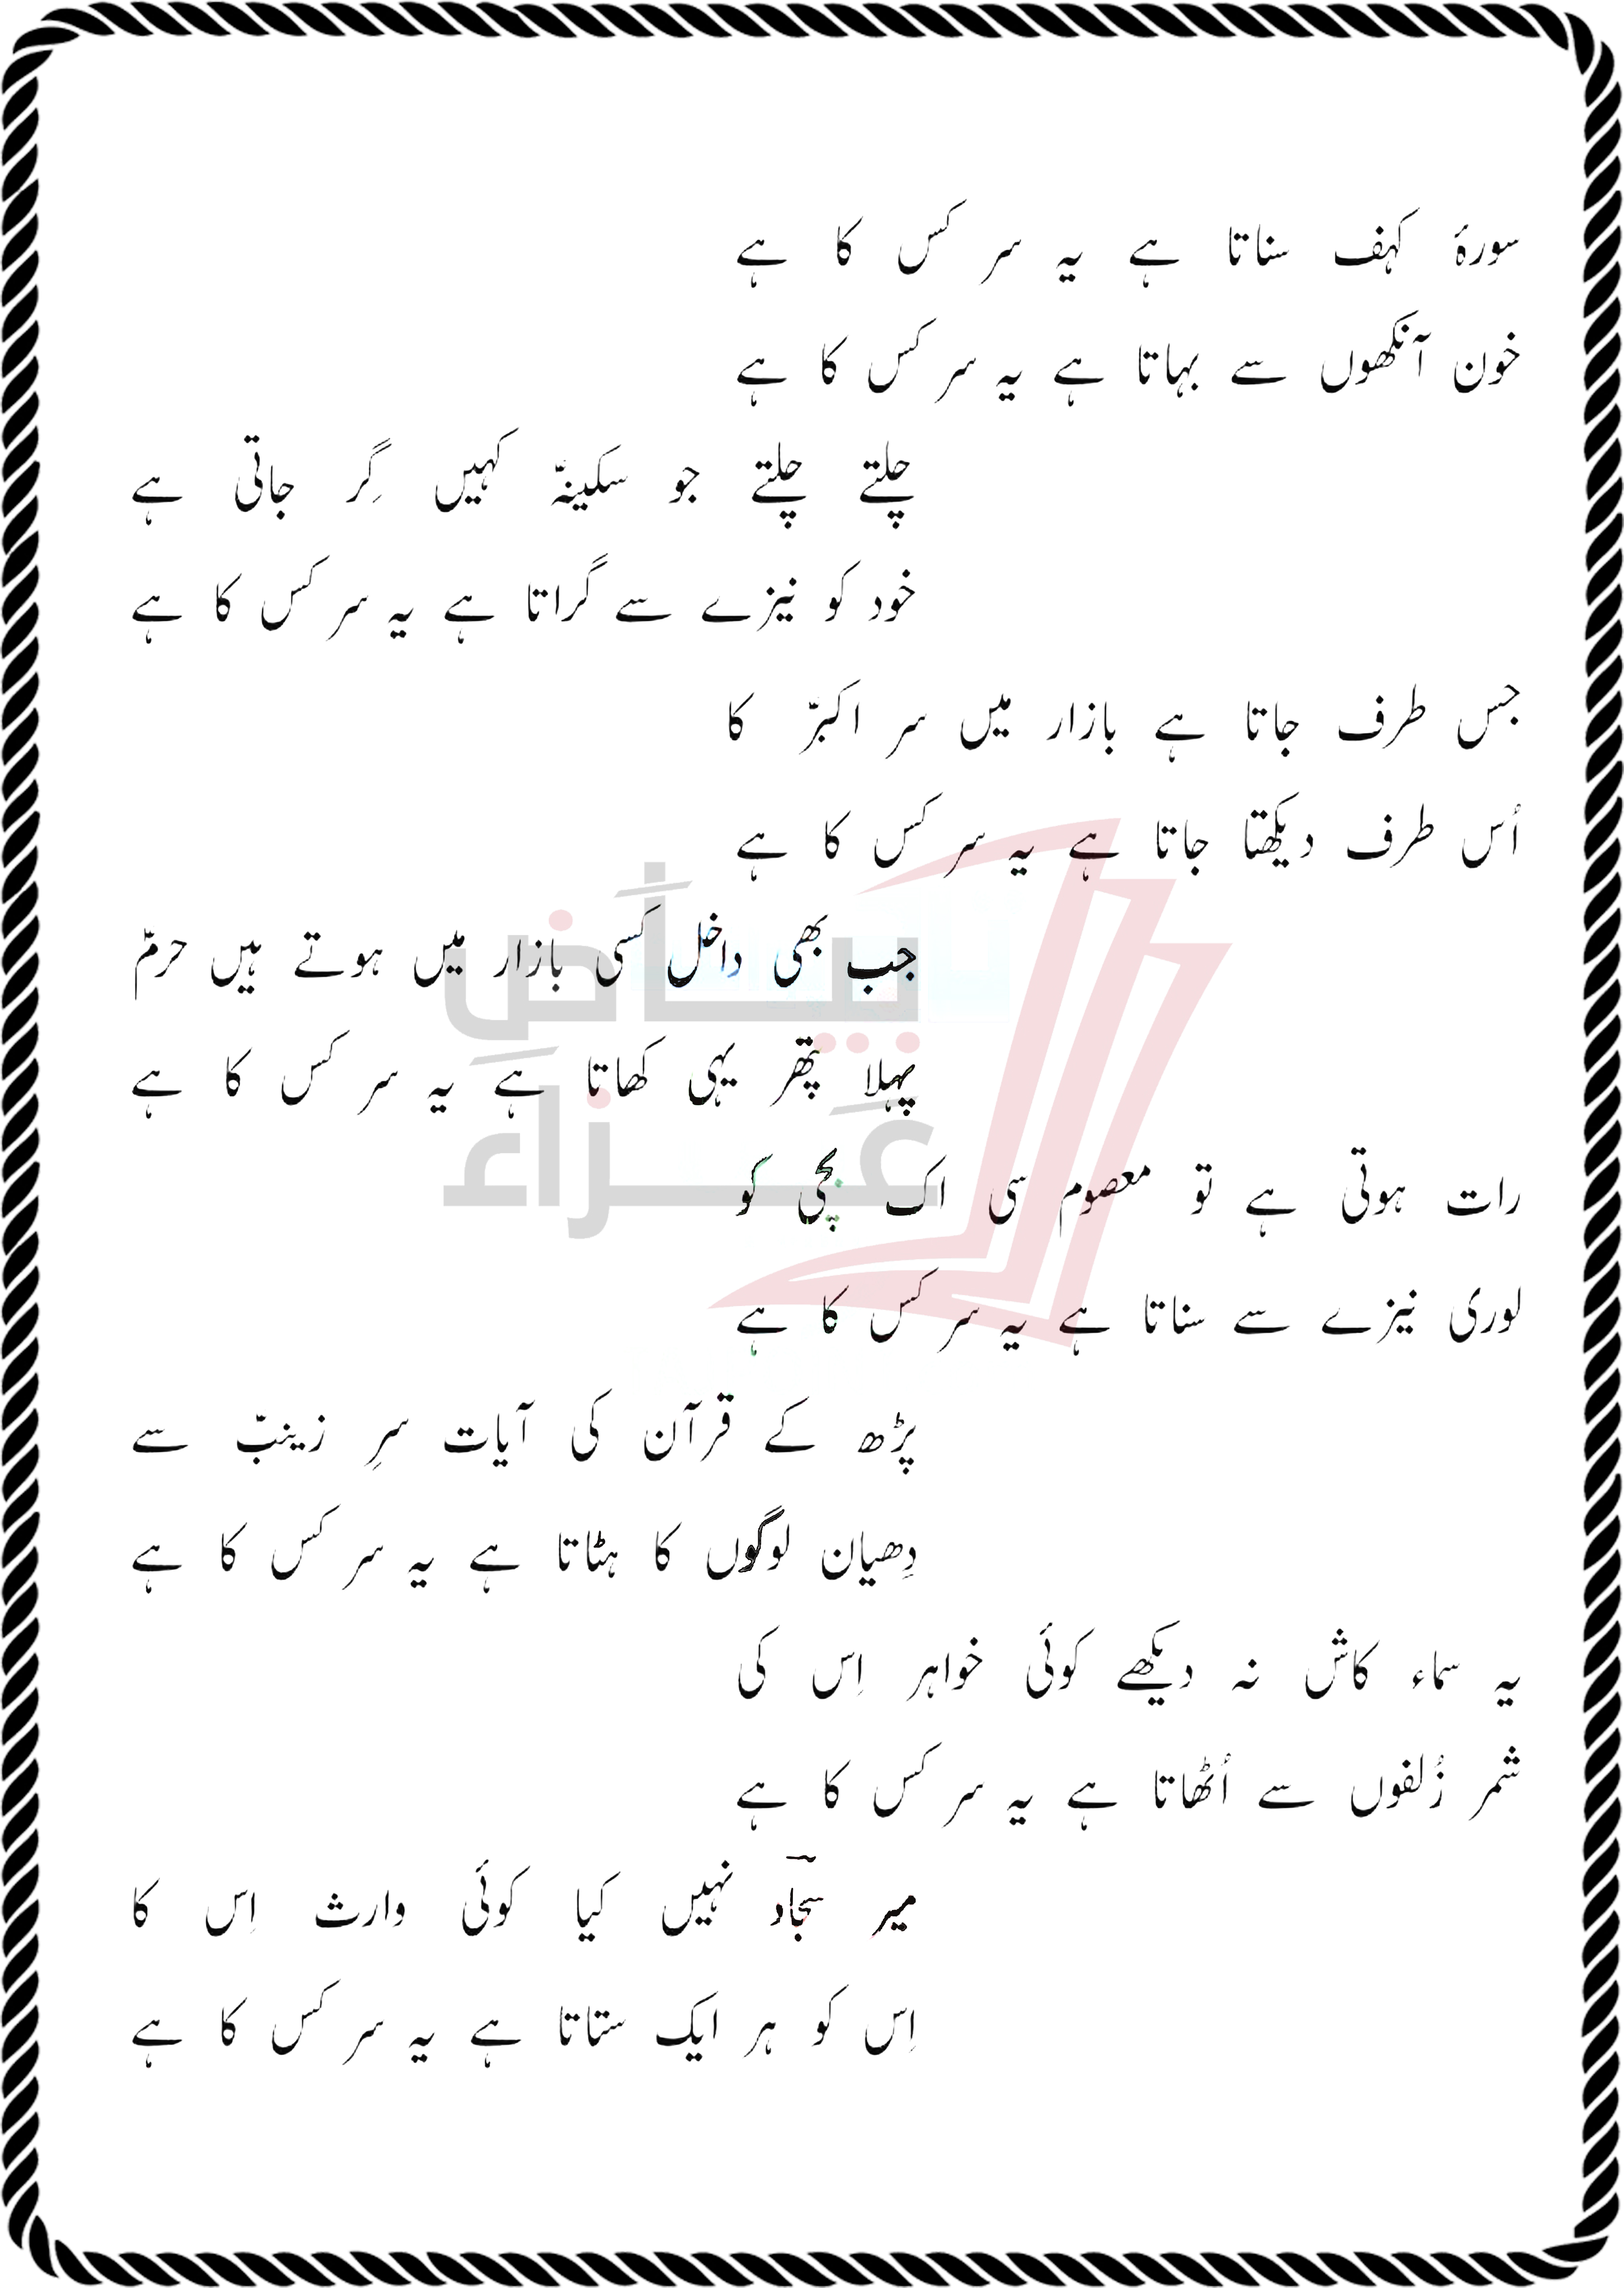 سورۂ کہف سناتا ہے یہ سر کس کا ہے
خون آنکھوں سے بہاتا ہے یہ سر کس کا ہے
چلتے چلتے جو سکینہؑ کہیں گِر جاتی ہے
خود کو نیزے سے گراتا ہے یہ سر کس کا ہے
جس طرف جاتا ہے بازار میں سر اکبرؑ کا
اُس طرف دیکھتا جاتا ہے یہ سر کس کا ہے
جب بھی داخل کسی بازار میں ہوتے ہیں حرمؑ
پہلا پتھر یہی کھاتا ہے یہ سر کس کا ہے
رات ہوتی ہے تو معصوم سی اک بچی کو
لوری نیزے سے سناتا ہے یہ سر کس کا ہے
پڑھ کے قرآن کی آیات سرِ زینبؑ سے
دِھیان لوگوں کا ہٹاتا ہے یہ سر کس کا ہے
یہ سماء کاش نہ دیکھے کوئی خواہر اِس کی
شمر زُلفوں سے اُٹھاتا ہے یہ سر کس کا ہے
میر سجاد نہیں کیا کوئی وارث اِس کا
اِس کو ہر ایک ستاتا ہے یہ سر کس کا ہے
بیاضِ
عزاء